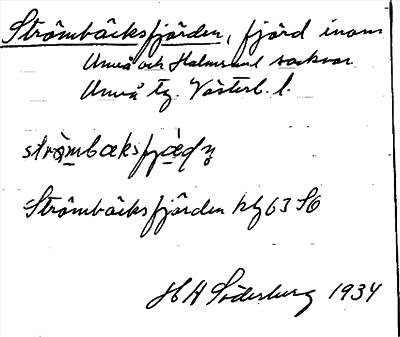 Strömbäcksfjärden, fjärd inom
Umeå och Holmsund socknar
Umeå tg. Västerb. l.
Strömbäcksfjärden kbl 63 SO
H A Söderberg 1934